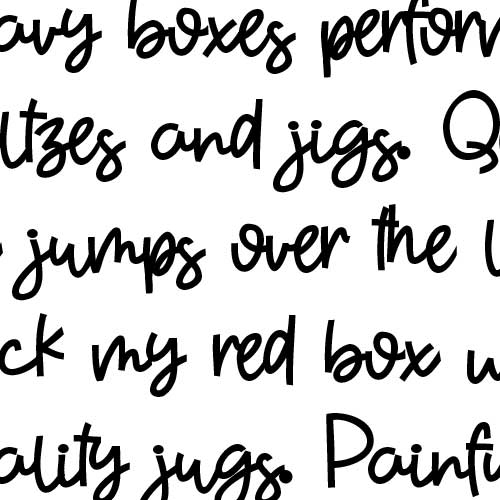 avy boxes perform
ltzes and jigs. Q
jumps over the l
ck my red box w
ality jugs. Painfu